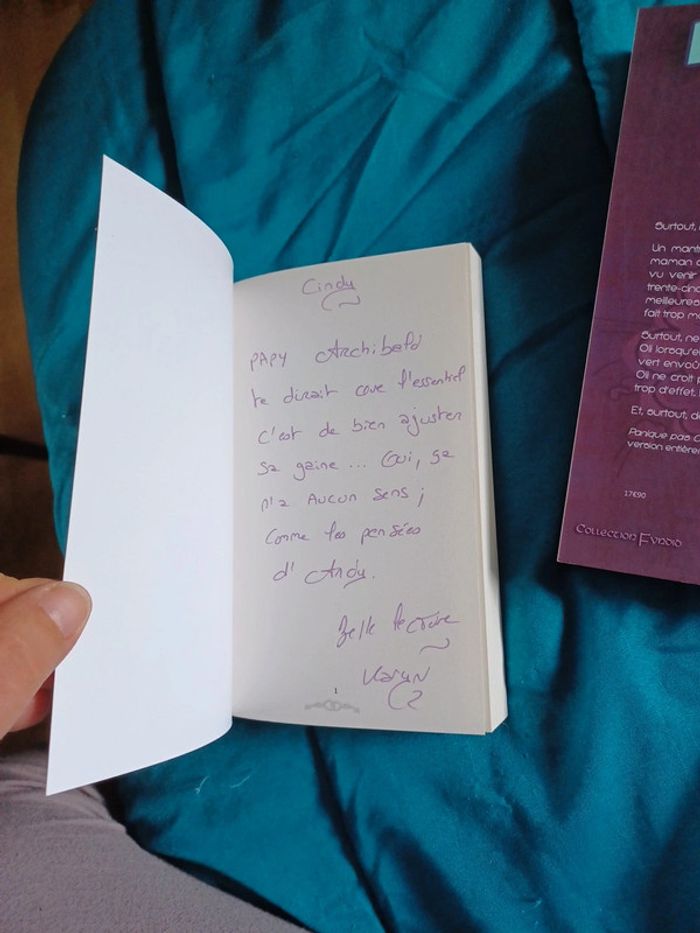 Cindy
PAPY Archibald
te dirait que l'essentiel
c'est de bien ajuster
sa gaine ... Oui, ça
n'a Aucun sens ;
comme les pensées
d'Andy.
Belle lecture
1
Surtout,
Un
maman
vu venir
trente-cinq
meilleures
fait trop
Surtout, ne
Oli lorsqu'e
vert envoû
Oli ne croit
trop d'effet.
Et, surtout, d
Panique pas
version entière
17€90
Collection Fundid